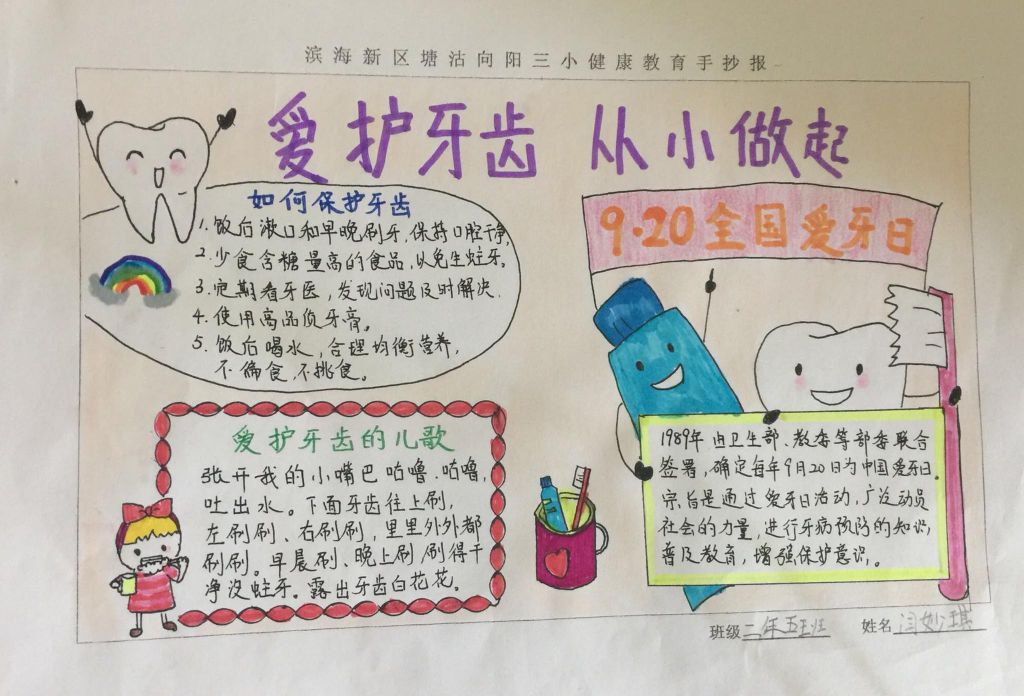 滨海新区塘沽向阳三小健康教育手抄报
爱护牙齿 从小做起
如何保护牙齿
1. 饭后漱口和早晚刷牙,保持口腔干净,
2. 少食含糖量高的食品,以免生蛀牙。
3. 定期看牙医,发现问题及时解决.
4. 使用高品质牙膏。
5. 饭后喝水,合理均衡营养,
不偏食,不挑食。
9·20全国爱牙日
爱护牙齿的儿歌
张开我的小嘴巴咕噜.咕噜,
吐出水。下面牙齿往上刷,
左刷刷、右刷刷,里里外外都
刷刷。早晨刷、晚上刷刷得干
净没蛀牙。露出牙齿白花花。
1989年由卫生部、教委等部委联合
签署,确定每年9月20日为中国爱牙日.
宗旨是通过爱牙日活动,广泛动员
社会的力量,进行牙病预防的知识,
普及教育,增强保护意识。
班级二年五班 姓名闫妙琪